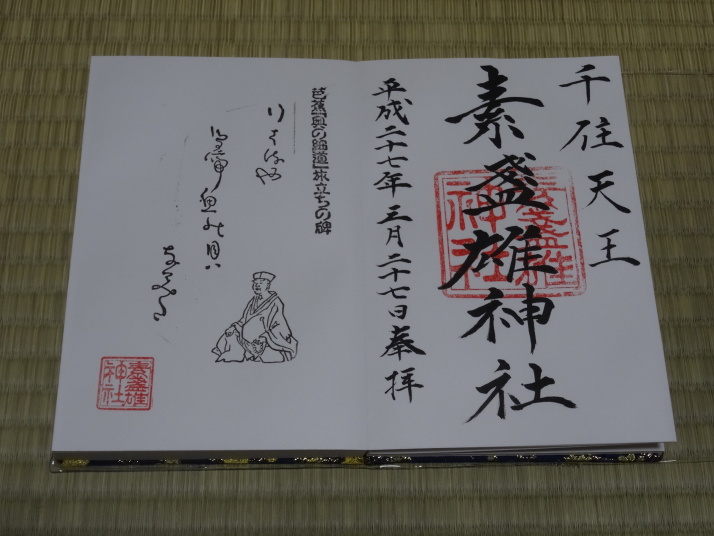 千住天王
素盞雄神社
素盞雄神社
平成二十七年三月二十七日奉拝
芭蕉「奥の細道」旅立ちの碑
行はるや
鳥啼魚の目ハ
なみた
素盞雄神社